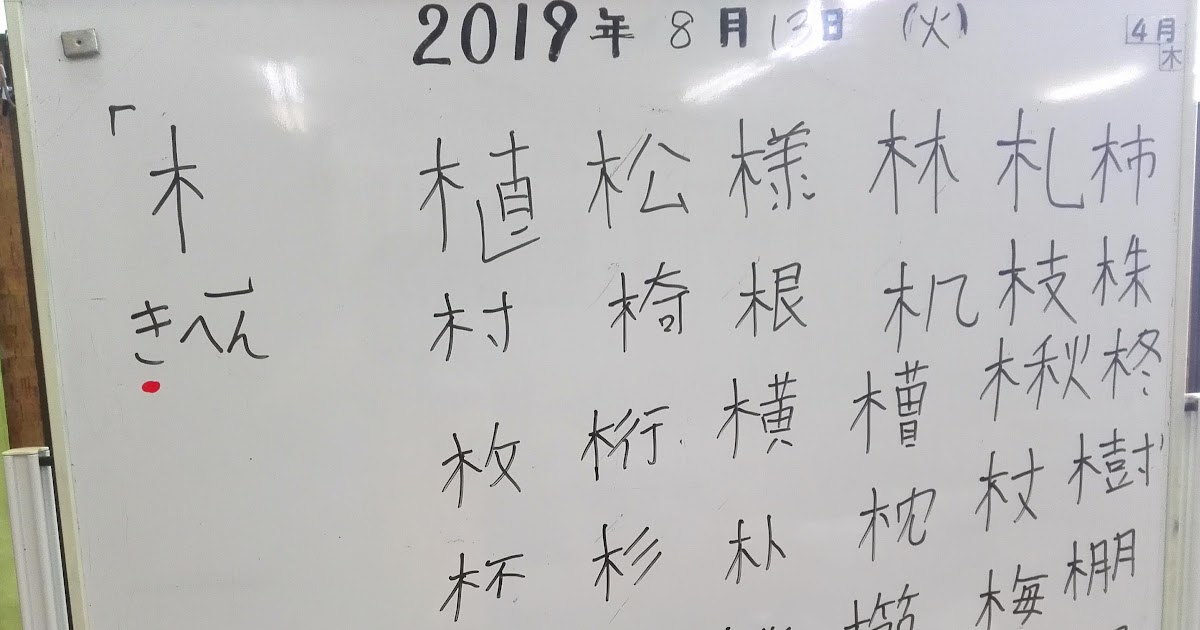 2019年 8月13日 (火)
4月
木
「木
きへん」
植 松 様 林 札 柿
村 椅 根 机 枝 株
枚 桁 横 槽 楸 柊
杯 杉 朴 枕 杖 樹
梅 棚